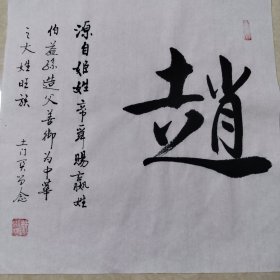 趙
源自姬姓帝舜賜嬴姓
伯益孫造父善御为中華
之大姓旺族